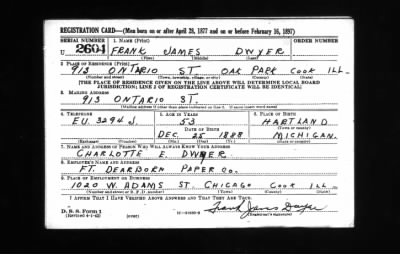 REGISTRATION CARD—(Men born on or after April 28, 1877 and on or before February 16, 1897)
SERIAL NUMBER 1. NAME (Print) ORDER NUMBER
U 2604 FRANK JAMES DWYER
(First) (Middle) (Last)
2. PLACE OF RESIDENCE (Print)
913 ONTARIO ST. OAK PARK COOK ILL.
(Number and street) (Town, township, village, or city) (County) (State)
[THE PLACE OF RESIDENCE GIVEN ON THE LINE ABOVE WILL DETERMINE LOCAL BOARD
JURISDICTION; LINE 2 OF REGISTRATION CERTIFICATE WILL BE IDENTICAL]
3. MAILING ADDRESS
913 ONTARIO ST.
[Mailing address if other than place indicated on line 2. If same insert word same]
4. TELEPHONE 5. AGE IN YEARS 6. PLACE OF BIRTH
EU. 3294 J. 53 HARTLAND
DATE OF BIRTH (Town or county)
DEC. 25 1888 MICHIGAN.
(Exchange) (Number) (Mo.) (Day) (Yr.) (State or country)
7. NAME AND ADDRESS OF PERSON WHO WILL ALWAYS KNOW YOUR ADDRESS
CHARLOTTE E. DWYER
8. EMPLOYER'S NAME AND ADDRESS
FT. DEARBORN PAPER CO.
9. PLACE OF EMPLOYMENT OR BUSINESS
1020 W. ADAMS ST. CHICAGO COOK ILL.
(Number and street or R. F. D. number) (Town) (County) (State)
I AFFIRM THAT I HAVE VERIFIED ABOVE ANSWERS AND THAT THEY ARE TRUE.
D. S. S. Form 1
(Revised 4-1-42) (over) Frank James Dwyer
(Registrant's signature)